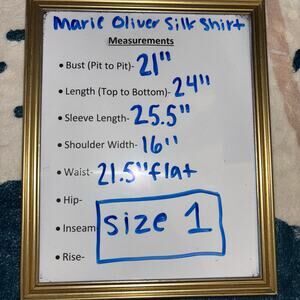 Marie Oliver Silk Shirt
Measurements
• Bust (Pit to Pit)- 21"
• Length (Top to Bottom)- 24"
• Sleeve Length- 25.5"
• Shoulder Width- 16"
• Waist- 21.5" flat
• Hip-
• Inseam
size 1
• Rise-